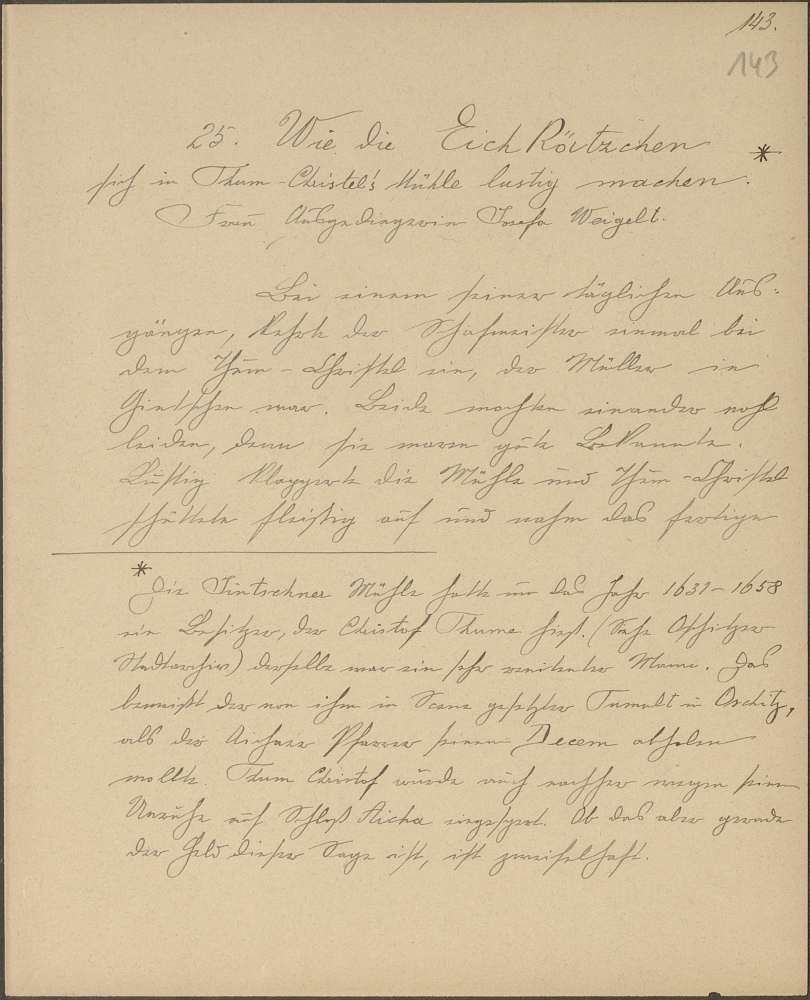 143.
143
25. Wie die EichKätzchen *
sich in Thum-Christel's Mühle lustig machen.
Frau Ausgedingerin Josefa Weigelt.
Bei einem seiner täglichen Aus-
gängen, kehrte der Schafmeister einmal bei
dem Thum-Christel ein, der Müller in
war. Beide mochten einander wohl
leiden, denn sie waren gute Bekannte.
Lustig klapperte die Mühle und Thum-Christel
schüttete fleißig auf und nahm das fertige
*
Die Mühle hatte um das Jahr 1631-1658
ein Besitzer, der Christof Thume hieß. (Siehe Oschitzer
Stadtarchiv) derselbe war ein sehr renitenter Mann. Das
beweißt der von ihm in Scene gesetzter Tumult in Oschitz,
als der Aichaer Pfarrer seinen Decem abholen
wollte. Thum Christof wurde auch nachher wegen seiner
Unruhe auf Schloß Aicha eingespert. Ob das aber gerade
der Held dieser Sage ist, ist zweifelhaft.